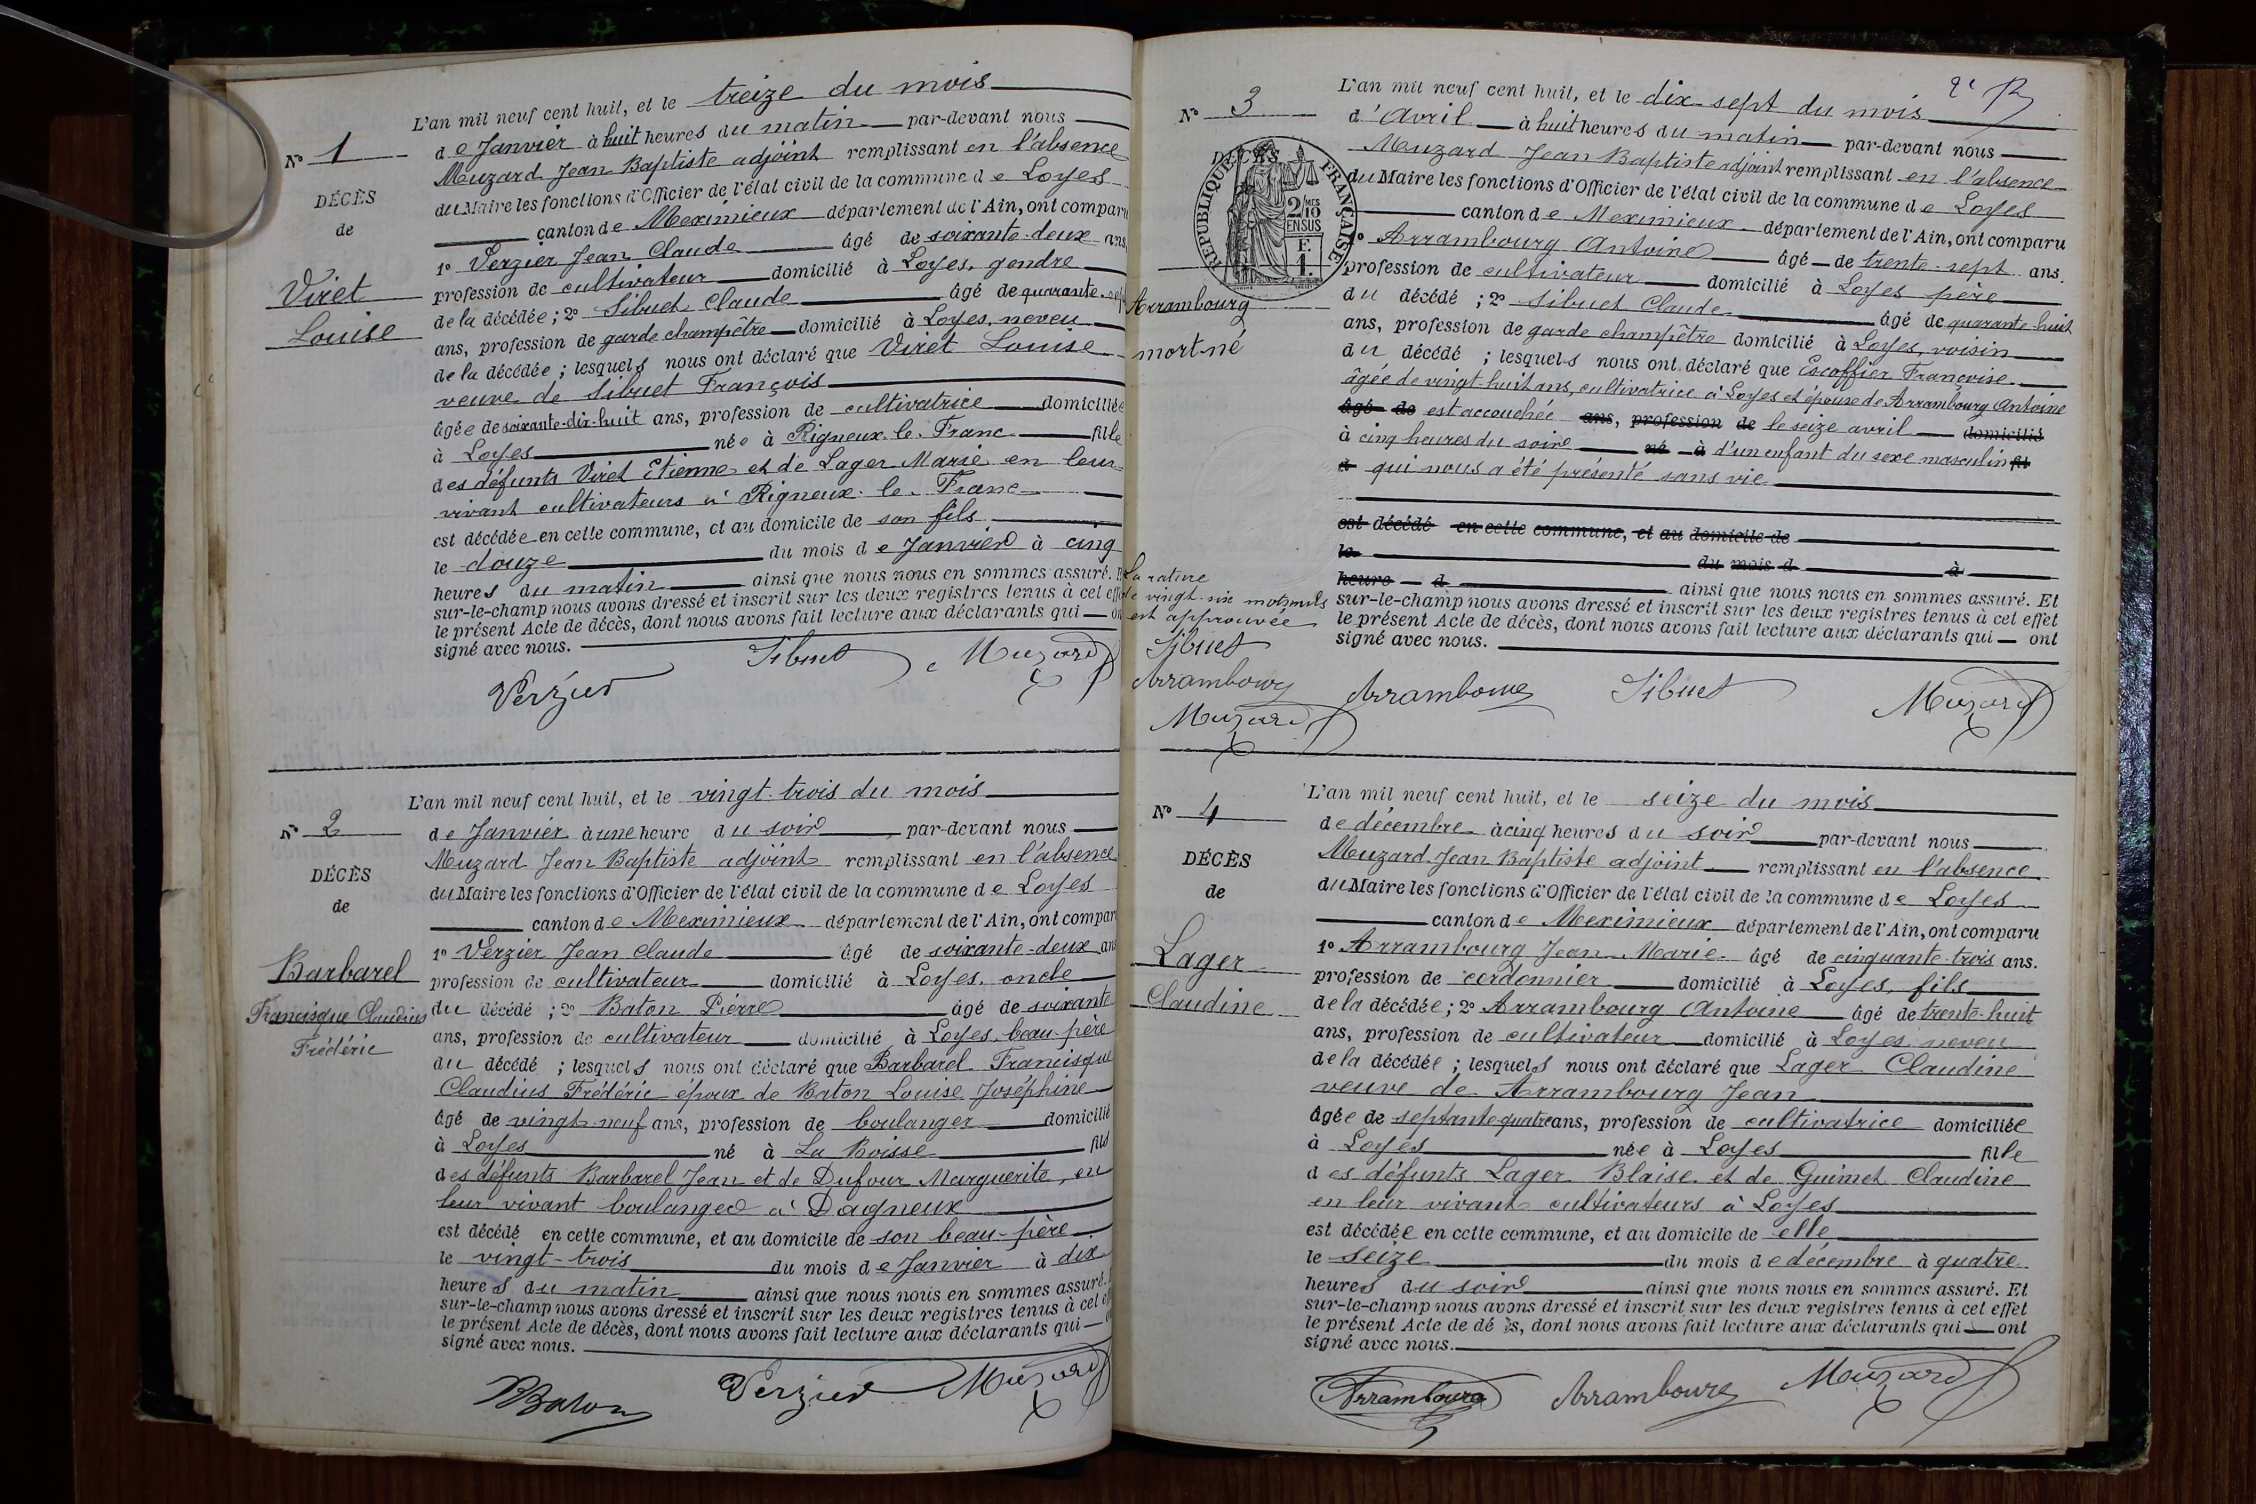 L'an mil neuf cent huit, et le treize du mois
de Janvier à huit heures du matin par-devant nous
Muzard Jean Baptiste adjoint remplissant en l'absence
du Maire les fonctions d'Officier de l'état civil de la commune de Loyes
canton de Meximieux département de l'Ain, ont comparu
1° Verzier Jean Claude âgé de soixante-deux ans,
profession de cultivateur domicilié à Loyes, gendre
de la décédée ; 2° Sibuet Claude âgé de quarante-
ans, profession de garde champêtre domicilié à Loyes, neveu
de la décédée ; lesquels nous ont déclaré que Viret Louise
veuve de Sibuet François
âgée de soixante-dix-huit ans, profession de cultivatrice domiciliée
à Loyes née à Rigneux-le-Franc fille
des défunts Viret Etienne et de Lager Marie en leur
vivant cultivateurs à Rigneux-le-Franc
est décédée en cette commune, et au domicile de son fils
le douze du mois de Janvier à cinq
heures du matin ainsi que nous nous en sommes assuré.
sur-le-champ nous avons dressé et inscrit sur les deux registres tenus à cet effet
le présent Acte de décès, dont nous avons fait lecture aux déclarants qui ont
signé avec nous.
Verzier Sibuet Muzard
N° 1
DÉCÈS
de
Viret
Louise
L'an mil neuf cent huit, et le vingt-trois du mois
de Janvier à une heure du soir par-devant nous
Muzard Jean Baptiste adjoint remplissant en l'absence
du Maire les fonctions d'Officier de l'état civil de la commune de Loyes
canton de Meximieux département de l'Ain, ont compar
1° Verzier Jean Claude âgé de soixante-deux ans
profession de cultivateur domicilié à Loyes, oncle
du décédé ; 2° Baton Pierre âgé de soixante
ans, profession de cultivateur domicilié à Loyes, beau-père
du décédé ; lesquels nous ont déclaré que Barbarel Francisque
Claudius Frédéric époux de Baton Louise Joséphine
âgé de vingt-neuf ans, profession de boulanger domicilié
à Loyes né à La Boisse fils
des défunts Barbarel Jean et de Dufour Marguerite, en
leur vivant boulanger à Dagneux
est décédé en cette commune, et au domicile de son beau-père
le vingt-trois du mois de Janvier à dix
heures du matin ainsi que nous nous en sommes assuré.
sur-le-champ nous avons dressé et inscrit sur les deux registres tenus à cet
le présent Acte de décès, dont nous avons fait lecture aux déclarants qui
signé avec nous.
Baton Verzier Muzard
N° 2
DÉCÈS
de
Barbarel
Francisque Claudius
Frédéric
2e
L'an mil neuf cent huit, et le dix-sept du mois
d'Avril à huit heures du matin par-devant nous
Muzard Jean Baptiste adjoint remplissant en l'absence
du Maire les fonctions d'Officier de l'état civil de la commune de Loyes
canton de Meximieux département de l'Ain, ont comparu
1° Arrambourg Antoine âgé de trente-sept ans.
profession de cultivateur domicilié à Loyes père
du décédé ; 2° Sibuet Claude âgé de quarante-huit
ans, profession de garde champêtre domicilié à Loyes, voisin
du décédé ; lesquels nous ont déclaré que Escoffier Françoise
âgée de vingt-huit ans, cultivatrice à Loyes et épouse de Arrambourg Antoine
âgé de est accouchée ans, profession de le seize avril domicilié
à cinq heures du soir né à d'un enfant du sexe masculin fil
d qui nous a été présenté sans vie
est décédé en cette commune, et au domicile de
le du mois d à
heure d ainsi que nous nous en sommes assuré. Et
sur-le-champ nous avons dressé et inscrit sur les deux registres tenus à cet effet
le présent Acte de décès, dont nous avons fait lecture aux déclarants qui ont
signé avec nous.
Arrambourg Sibuet Muzard
N° 3
DÉCÈS
RÉPUBLIQUE FRANÇAISE
2/10 MES
EN SUS
1 F.
Arrambourg
mort-né
La rature
de vingt-six mots nuls
est approuvée
Sibuet
Arrambourg
Muzard
L'an mil neuf cent huit, et le seize du mois
de décembre à cinq heures du soir par-devant nous
Muzard Jean Baptiste adjoint remplissant en l'absence
du Maire les fonctions d'Officier de l'état civil de la commune de Loyes
canton de Meximieux département de l'Ain, ont comparu
1° Arrambourg Jean-Marie âgé de cinquante-trois ans.
profession de cordonnier domicilié à Loyes, fils
de la décédée ; 2° Arrambourg Antoine âgé de trente-huit
ans, profession de cultivateur domicilié à Loyes neveu
de la décédée ; lesquels nous ont déclaré que Lager Claudine
veuve de Arrambourg Jean
âgée de septante quatre ans, profession de cultivatrice domiciliée
à Loyes née à Loyes fille
des défunts Lager Blaise et de Guimet Claudine
en leur vivant cultivateurs à Loyes
est décédée en cette commune, et au domicile de elle
le seize du mois de décembre à quatre
heures du soir ainsi que nous nous en sommes assuré. Et
sur-le-champ nous avons dressé et inscrit sur les deux registres tenus à cet effet
le présent Acte de dé ès, dont nous avons fait lecture aux déclarants qui ont
signé avec nous.
Arrambourg Arrambourg Muzard
N° 4
DÉCÈS
de
Lager
Claudine